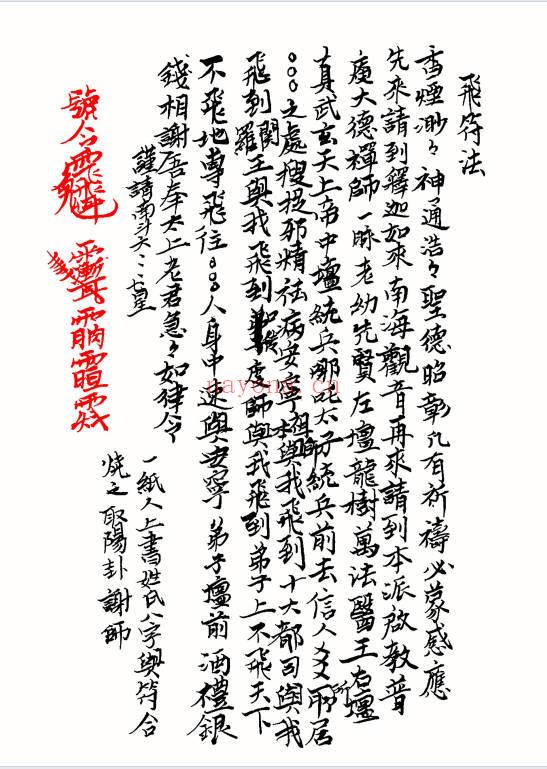 飛符法
香煙渺々神通浩々聖德昭彰凡有祈禱必蒙感應
先來請到釋迦如來南海觀音再來請到本派啟教普
庵大德禪師一脉老幼先賢左壇龍樹萬法醫王右壇
真武玄天上帝中壇統兵哪吒太子統兵前去信人所居
○○○之處搜捉邪精祛病安寧祖師與我飛到十大都司與我
飛到閻羅王與我飛到師與我飛到弟子上不飛天下
不飛地專飛往○○○人身中速與安寧弟子壇前酒禮銀
錢相謝吾奉太上老君急々如律令
謹請南斗六
一紙人上書姓氏八字與符合
燒之取陽卦謝師
號令